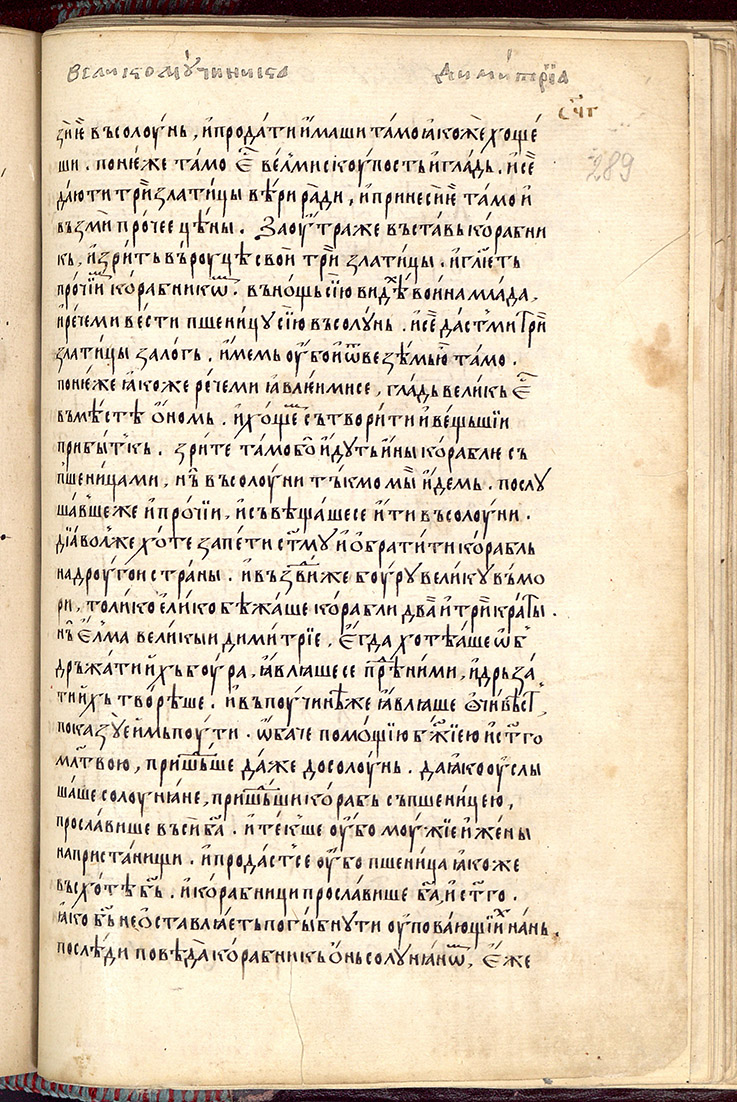 Великомꙋ́чиника Дими́трїа
с҃чг
289
зи́и҆е въсолоу́нь, и҆прода́ти и҆́маши та́мо ꙗ҆́коже хо́ще
ши . поне́же та́мо є҆́ ве́лми скоу́пость и҆ гла́дь . и҆ се
да́ю ти трѝ зла́тицы вѣ́ри ра́ди , и҆ принесѝ є҆ та́мо и҆
възмѝ про́чее цѣ́ны . Заоу́тра же въста́вь кора́бни
кь , и҆ зри́ть въ роу́цѣ свое́й трѝ зла́тицы . и҆ гл҃еть
про́чїим кора́бникѡм . въ но́щь сїю ви́дѣх во́ина мла́да ,
и҆ рече́ ми ве́сти пшени́цу сїю въ со́лунь . и҆ се да́ст ми трѝ
зла́тицы зало́гь . и҆́мемь оу҆́бо и҆ ѿвезѣ́мь ю҆ та́мо .
поне́же ꙗ҆́коже рече́ ми ꙗ҆вле́и ми се , гла́дь вели́кь є҆́
въ мѣ́стѣ о҆́номь . и҆ хо́щем сътвори́ти и҆ ве́щьшїи
прибы́тькь . зри́те та́мо бо и҆ду́ть и҆́ны кора́блїе съ
пшени́цами , нъ въ солоу́ни тъ́кмо мы̀ и҆́демь . послу
ша́вше же и҆ про́чїи , и҆ съвѣща́ше се и҆́ти въ солоу́ни .
дїа́воль же хо́те запе́ти ст҃му и҆ ѡ҆брати́ти кора́бль
на дроугои стра́ны . и҆ въздви́же боу́ру вели́ку въ мо
ри , толи́ко є҆ли́ко бѣжа́ше кора́бли два̀ и҆ трѝ кра́ты .
нъ є҆́лма вели́кыи дими́трїе , є҆гда̀ хотѣ́аше ѡ҆б
дръжа́ти и҆́хь боу́ра , ꙗ҆влꙗ́ше се прѣд ни́ми , и҆ дръза́
ти и҆́хь творѣ́ше . и҆ въ поу́чинѣ же ꙗ҆влꙗ́ше ѡ҆чивѣст ,
показу́е и҆́мь поу́ти . ѡ҆ба́че по́мощїю бж҃їею и҆ ст҃го
мл҃твою , пришъ́дьше да́же до солоу́нь . да ꙗ҆́ко оу҆слы
ша́ше солоу́нꙗне , пришъ́дьши кора́бь съ пшени́цею ,
просла́више въсѝ ба҃ . и҆ теќше оу҆́бо моу́жїе и҆ же́ны
на приста́нищи . и҆ прода́ст се оу҆́бо пшени́ца ꙗ҆́коже
въсхо́тѣ бь҃ . и҆ кора́бници просла́више ба҃ , и҆ ст҃го .
ꙗ҆́ко бь҃ не ѡ҆ставлꙗ́еть погы́бнути оу҆пова́ющїих на́нь .
послѣ́ди повѣ́да кора́бникь ѡ҆́нь солунꙗ́нѡм , є҆́же